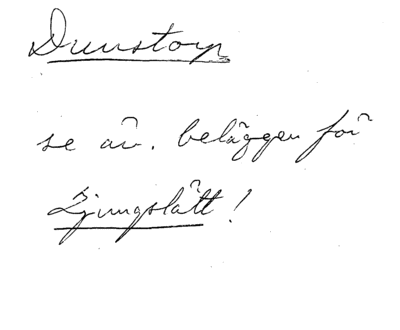 Dunstorp
se äv. beläggen för
Ljungslätt!